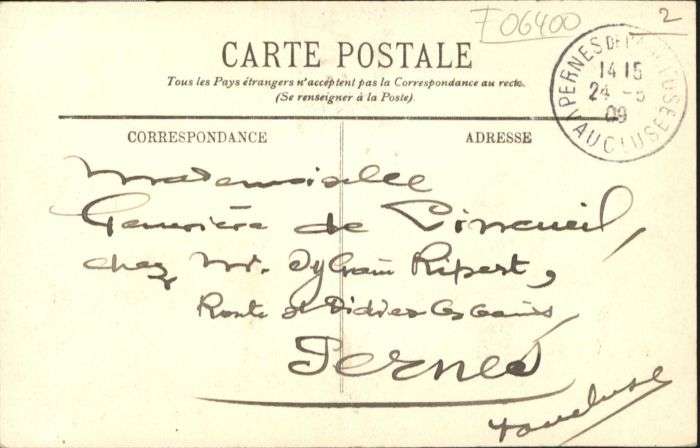 F06400
2
CARTE POSTALE
Tous les Pays étrangers n'acceptent pas la Correspondance au recto.
(Se renseigner à la Poste).
PERNES VAUCLUSE
14 15
24 -
09
CORRESPONDANCE
ADRESSE
Mademoiselle
Geneviève de Pineueil,
chez Mr. Sylvain Ripert,
Route St Didier les Bains,
Pernes
Vaucluse